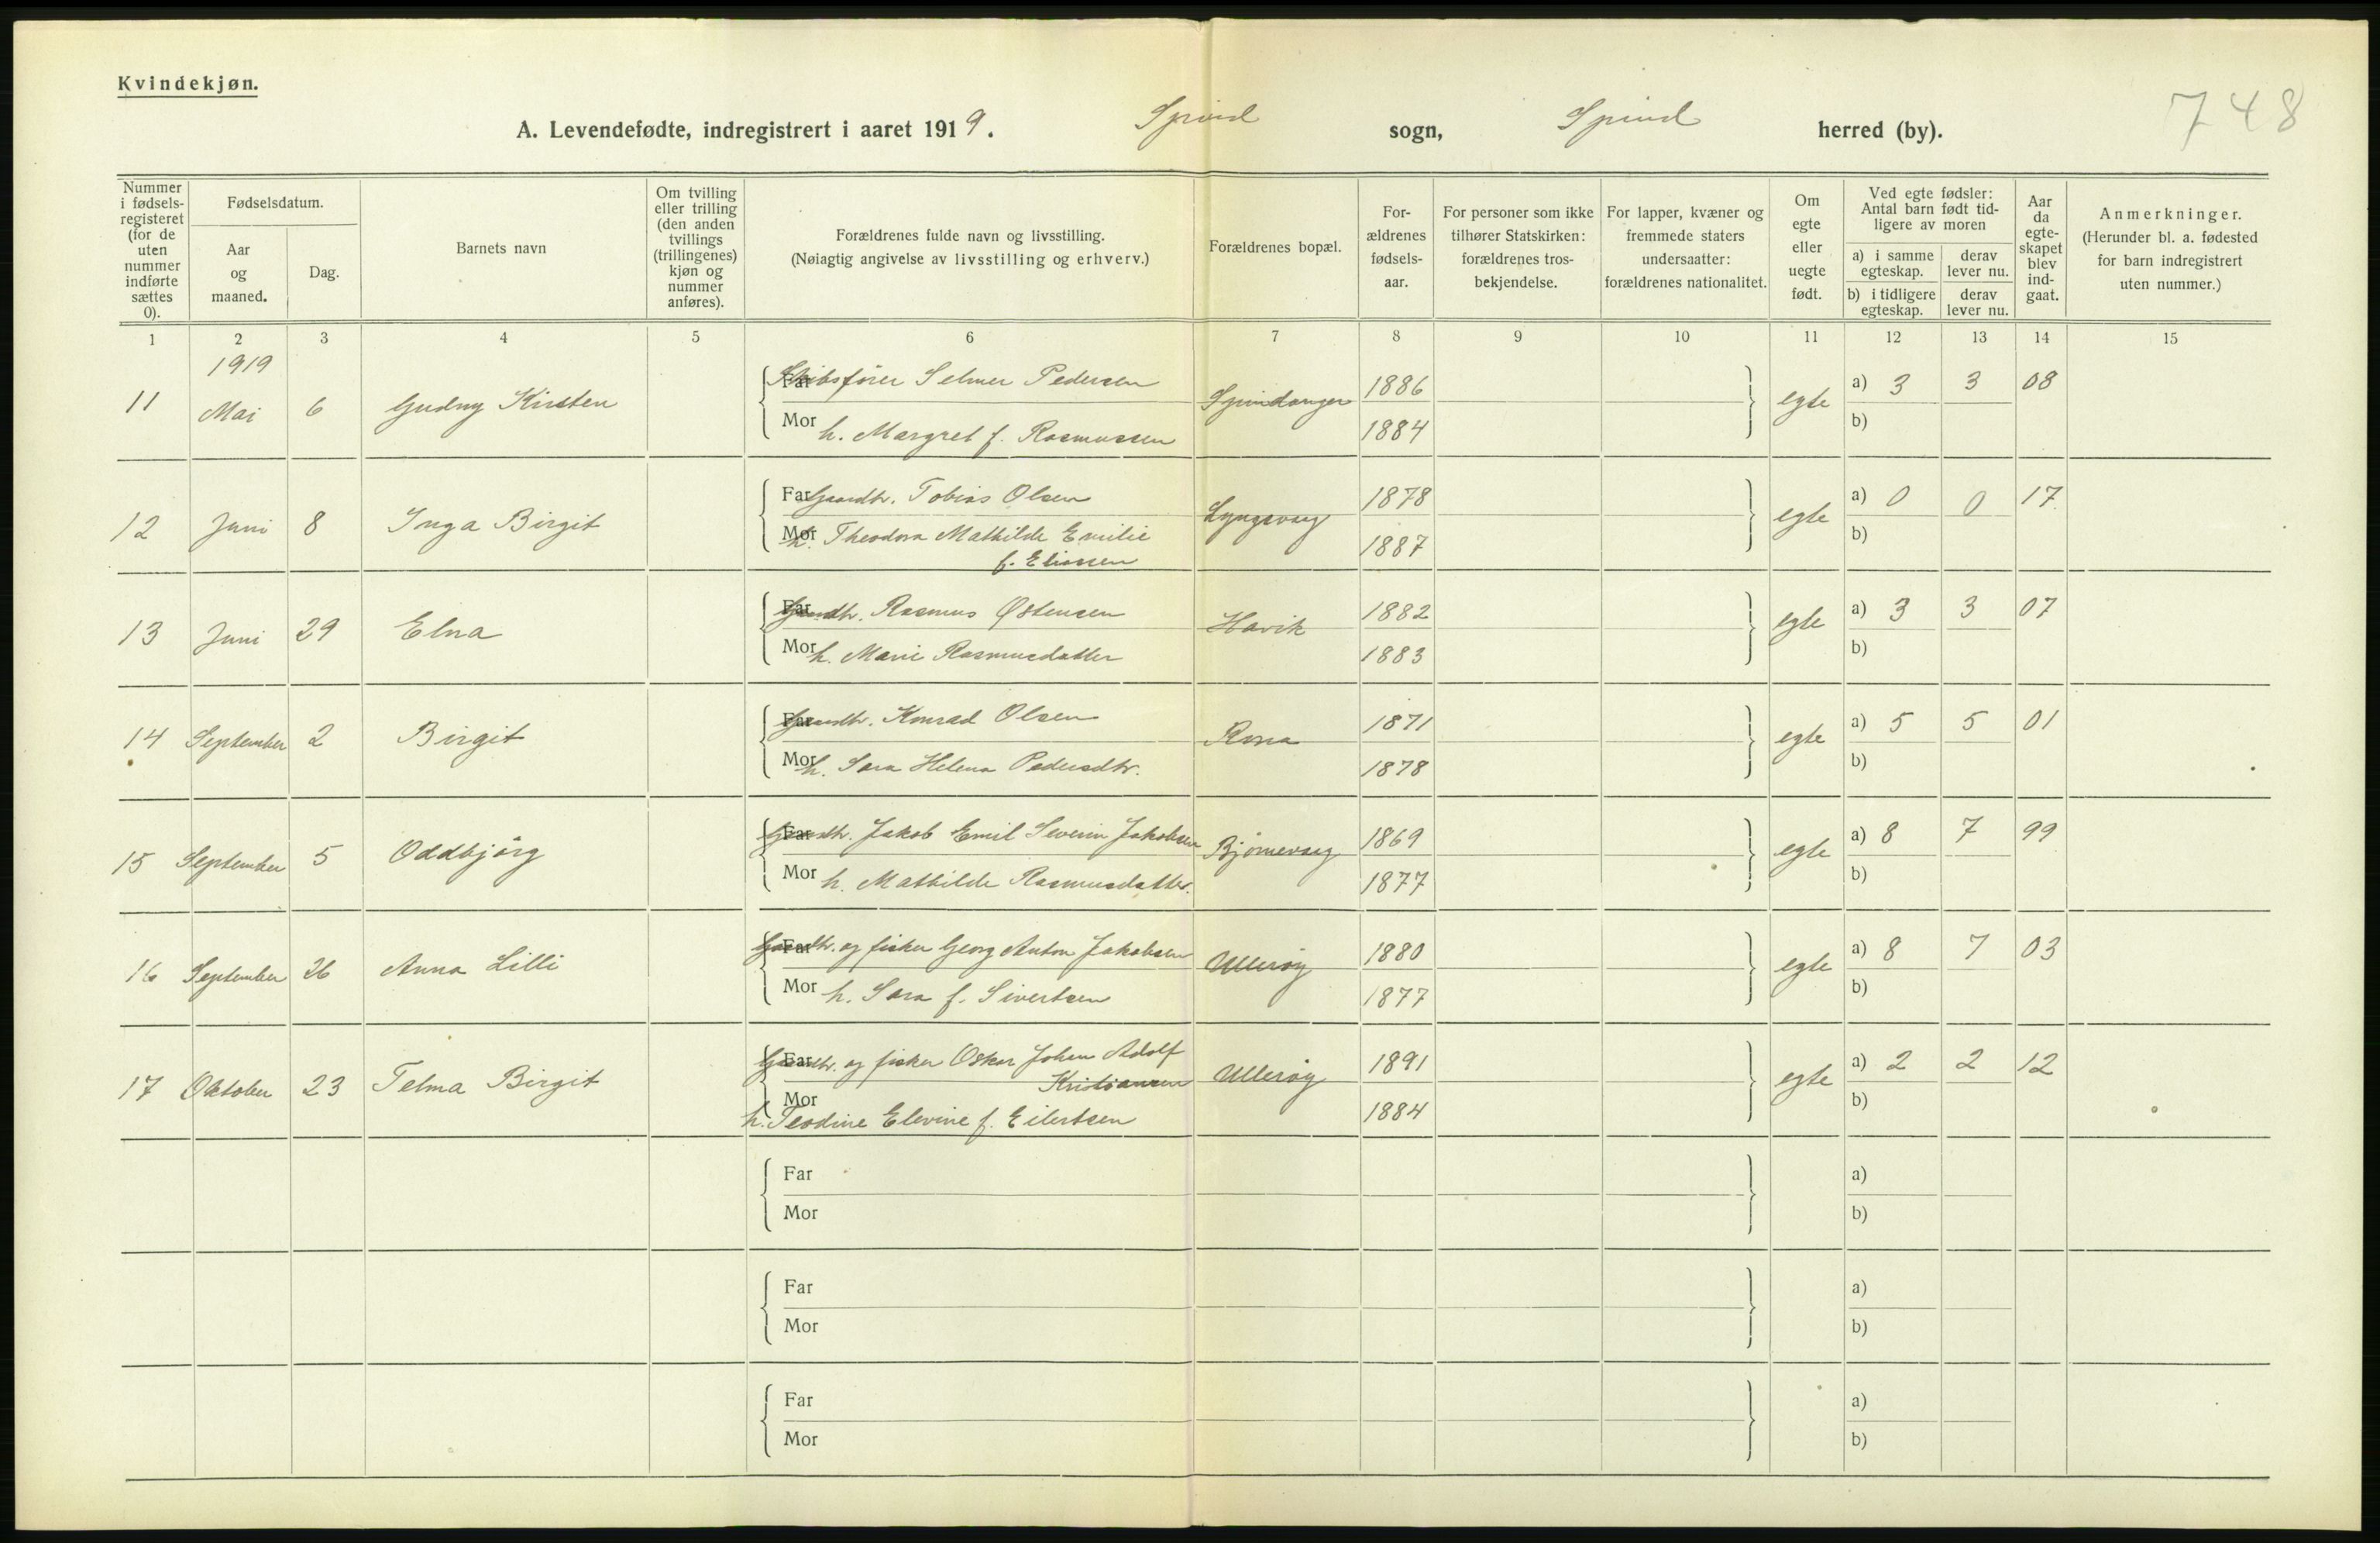 Kvindekjøn.
748
A. Levendefødte, indregistrert i aaret 1919. Spind sogn, Spind herred (by).
Nummer i fødsels-registeret (for de uten nummer indførte sættes 0).
Fødselsdatum.
Aar og maaned.
Dag.
Barnets navn
Om tvilling eller trilling (den anden tvillings (trillingenes) kjøn og nummer anføres).
Forældrenes fulde navn og livsstilling.
(Nøiagtig angivelse av livsstilling og erhverv.)
Forældrenes bopæl.
For-ældrenes fødsels-aar.
For personer som ikke tilhører Statskirken: forældrenes tros-bekjendelse.
For lapper, kvæner og fremmede staters undersaatter: forældrenes nationalitet.
Om egte eller uegte født.
Ved egte fødsler: Antal barn født tid-ligere av moren
a) i samme egteskap.
derav lever nu.
b) i tidligere egteskap.
derav lever nu.
Aar da egte-skapet blev ind-gaat.
Anmerkninger.
(Herunder bl. a. fødested for barn indregistrert uten nummer.)
1 2 3 4 5 6 7 8 9 10 11 12 13 14 15
1919
11 Mai 6 Gudny Kirsten Far Skibsfører Selmer Pedersen Spindanger 1886 egte a) 3 3 08
Mor h. Margret f. Rasmussen 1884 b)
12 Juni 8 Inga Birgit Far Gaardbr. Tobias Olsen Lyngsvaag 1878 egte a) 0 0 17
Mor h. Theodora Mathilde Emilie 1887 b)
f. Eliassen
13 Juni 29 Elna Far Gaardbr. Rasmus Østensen Havik 1882 egte a) 3 3 07
Mor h. Marie Rasmusdatter 1883 b)
14 September 2 Birgit Far Gaardbr. Konrad Olsen Rosa 1871 egte a) 5 5 01
Mor h. Sara Helena Pedersdtr. 1878 b)
15 September 5 Oddbjørg Far Gaardbr. Jakob Emil Severin Jakobsen Bjørnevaag 1869 egte a) 8 7 99
Mor h. Mathilde Rasmusdatter. 1877 b)
16 September 26 Anna Lilli Far Gaardbr. og fisker Georg Anton Jakobsen Ullerøy 1880 egte a) 8 7 03
Mor h. Sara f. Sivertsen 1877 b)
17 Oktober 23 Telma Birgit Far Gaardbr. og fisker Oskar Johan Adolf Ullerøy 1891 egte a) 2 2 12
Kristiansen
Mor h. Teodine Elevine f. Eilertsen 1884 b)
Far a)
Mor b)
Far a)
Mor b)
Far a)
Mor b)